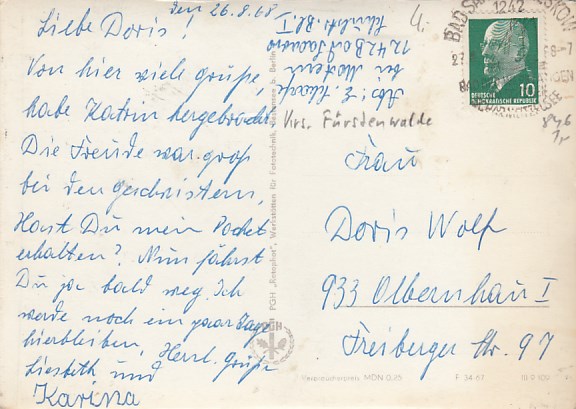 den 26.8.68
Liebe Doris!
Von hier viele Grüße,
habe Katrin hergebracht
Die Freude war groß
bei den geschwistern,
Hast Du mein Packet
erhalten? Nun fährst
Du ja bald weg. Ich
werde noch ein paar Tage
hierbleiben, Herzl. Grüße
Liesbeth und
Karina
Abs: E.
bei
1242 Bad Saarow
Bl. I
Krs. Fürstenwalde
4.
PGH „Rotophot“, Werkstätten für Fototechnik, bei Berlin
BAD SAAROW-PIESKOW
1242
10
DEUTSCHE
DEMOKRATISCHE REPUBLIK
Frau
Doris Wolf
933 Olbernhau I
Freiberger Str. 97
Verbraucherpreis MDN 0,25
F 34 67
III 9 109